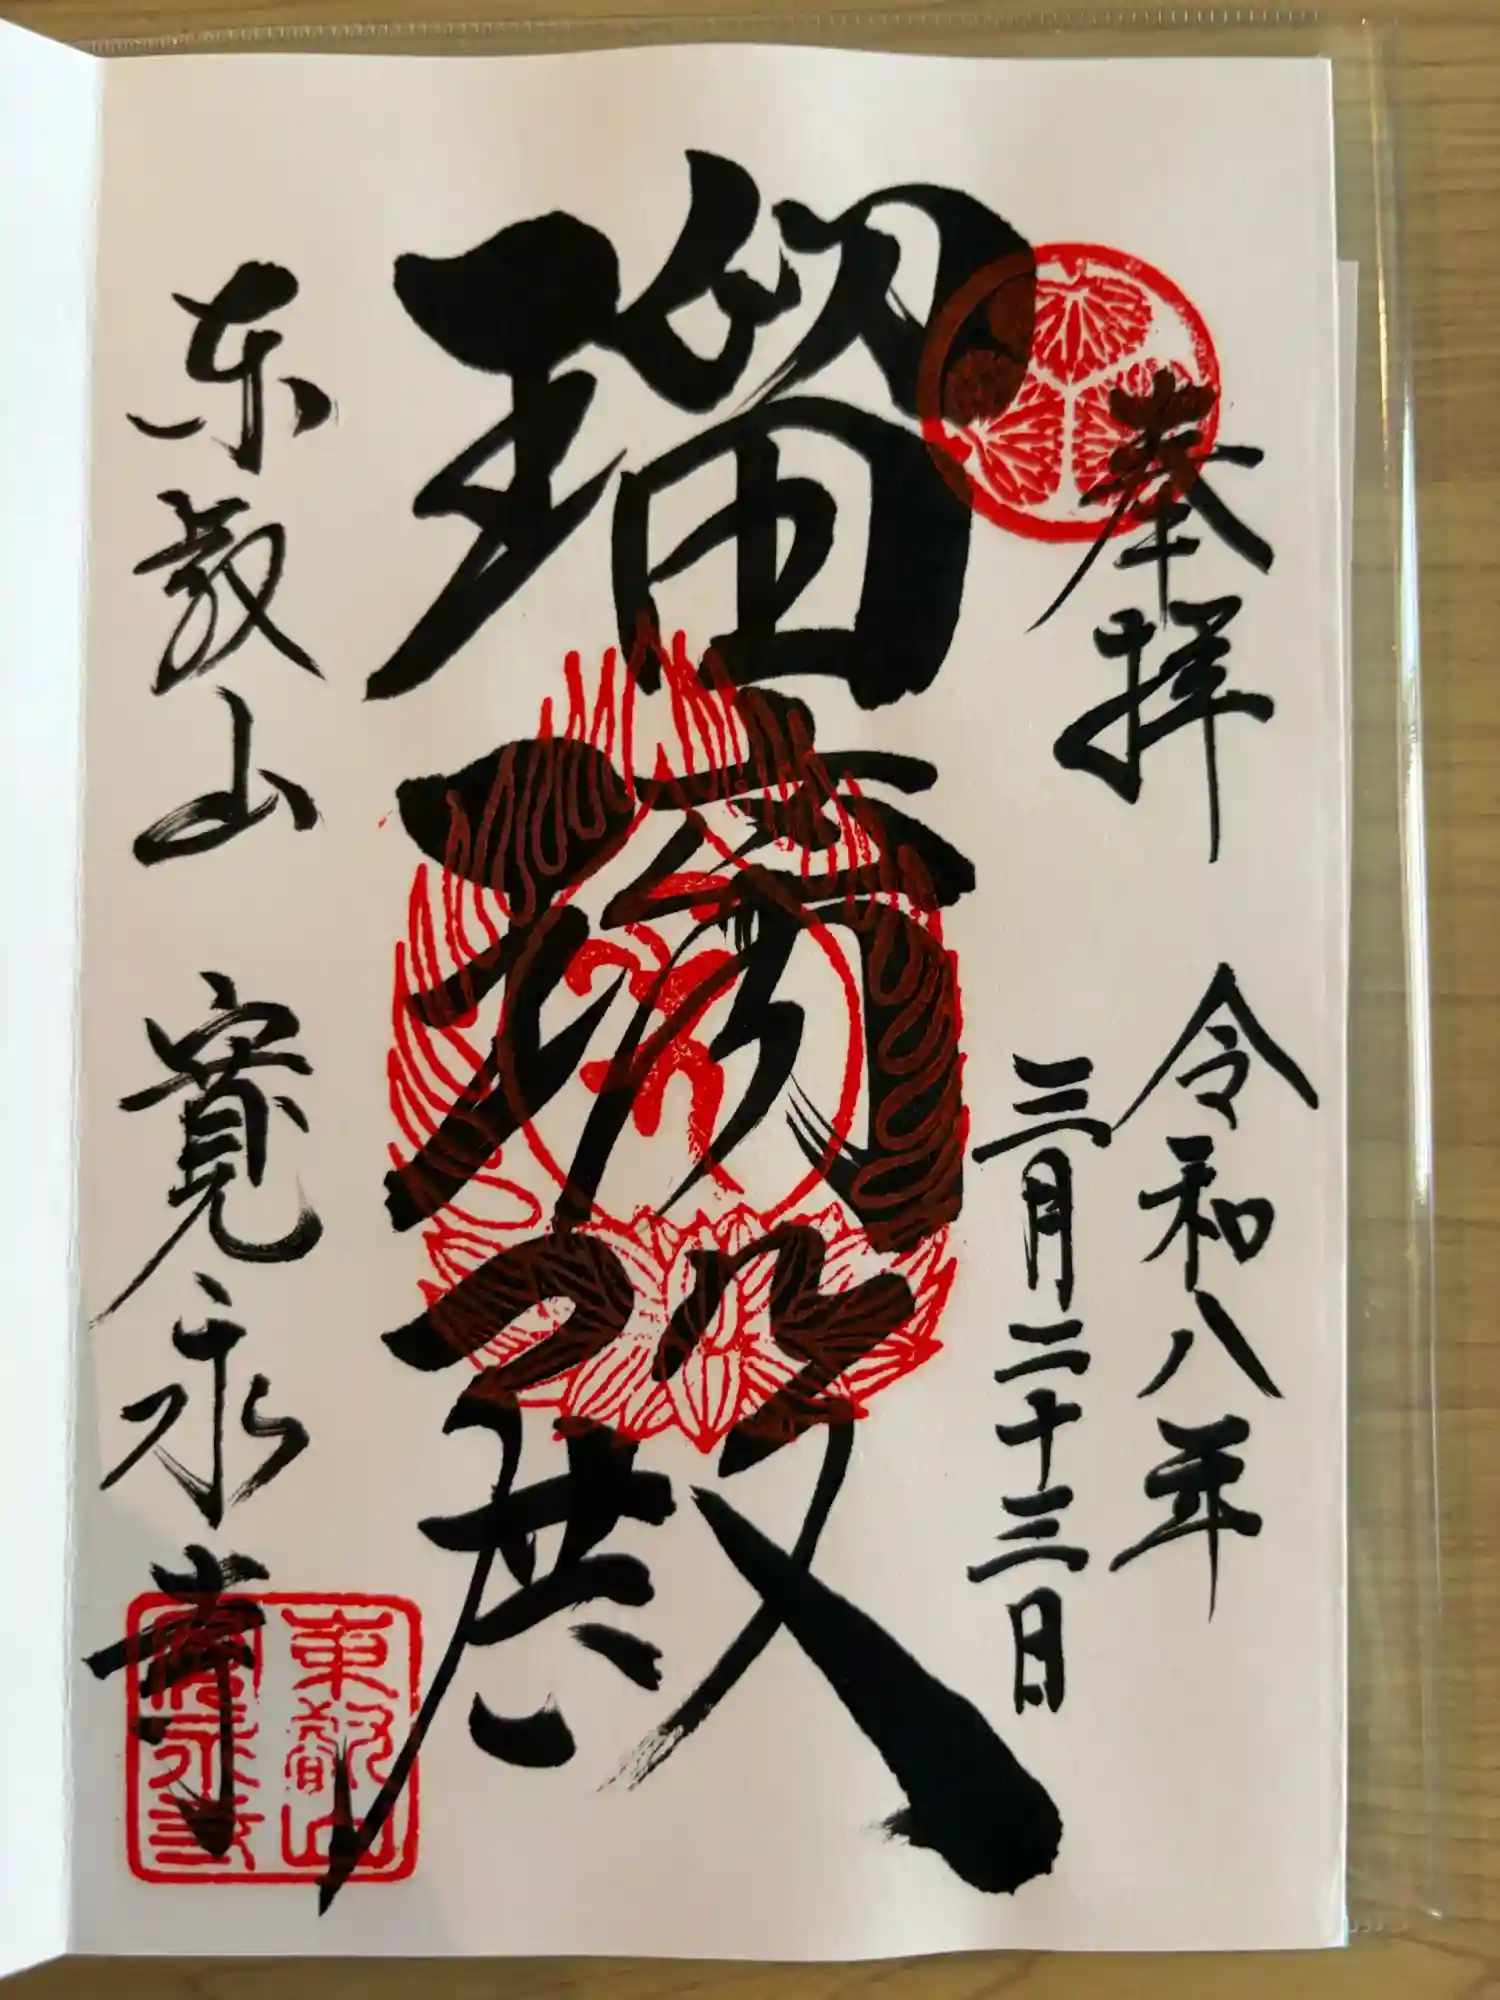 奉拝
令和八年
三月二十三日
瑠璃殿
東叡山 寛永寺
東叡山
寛永寺